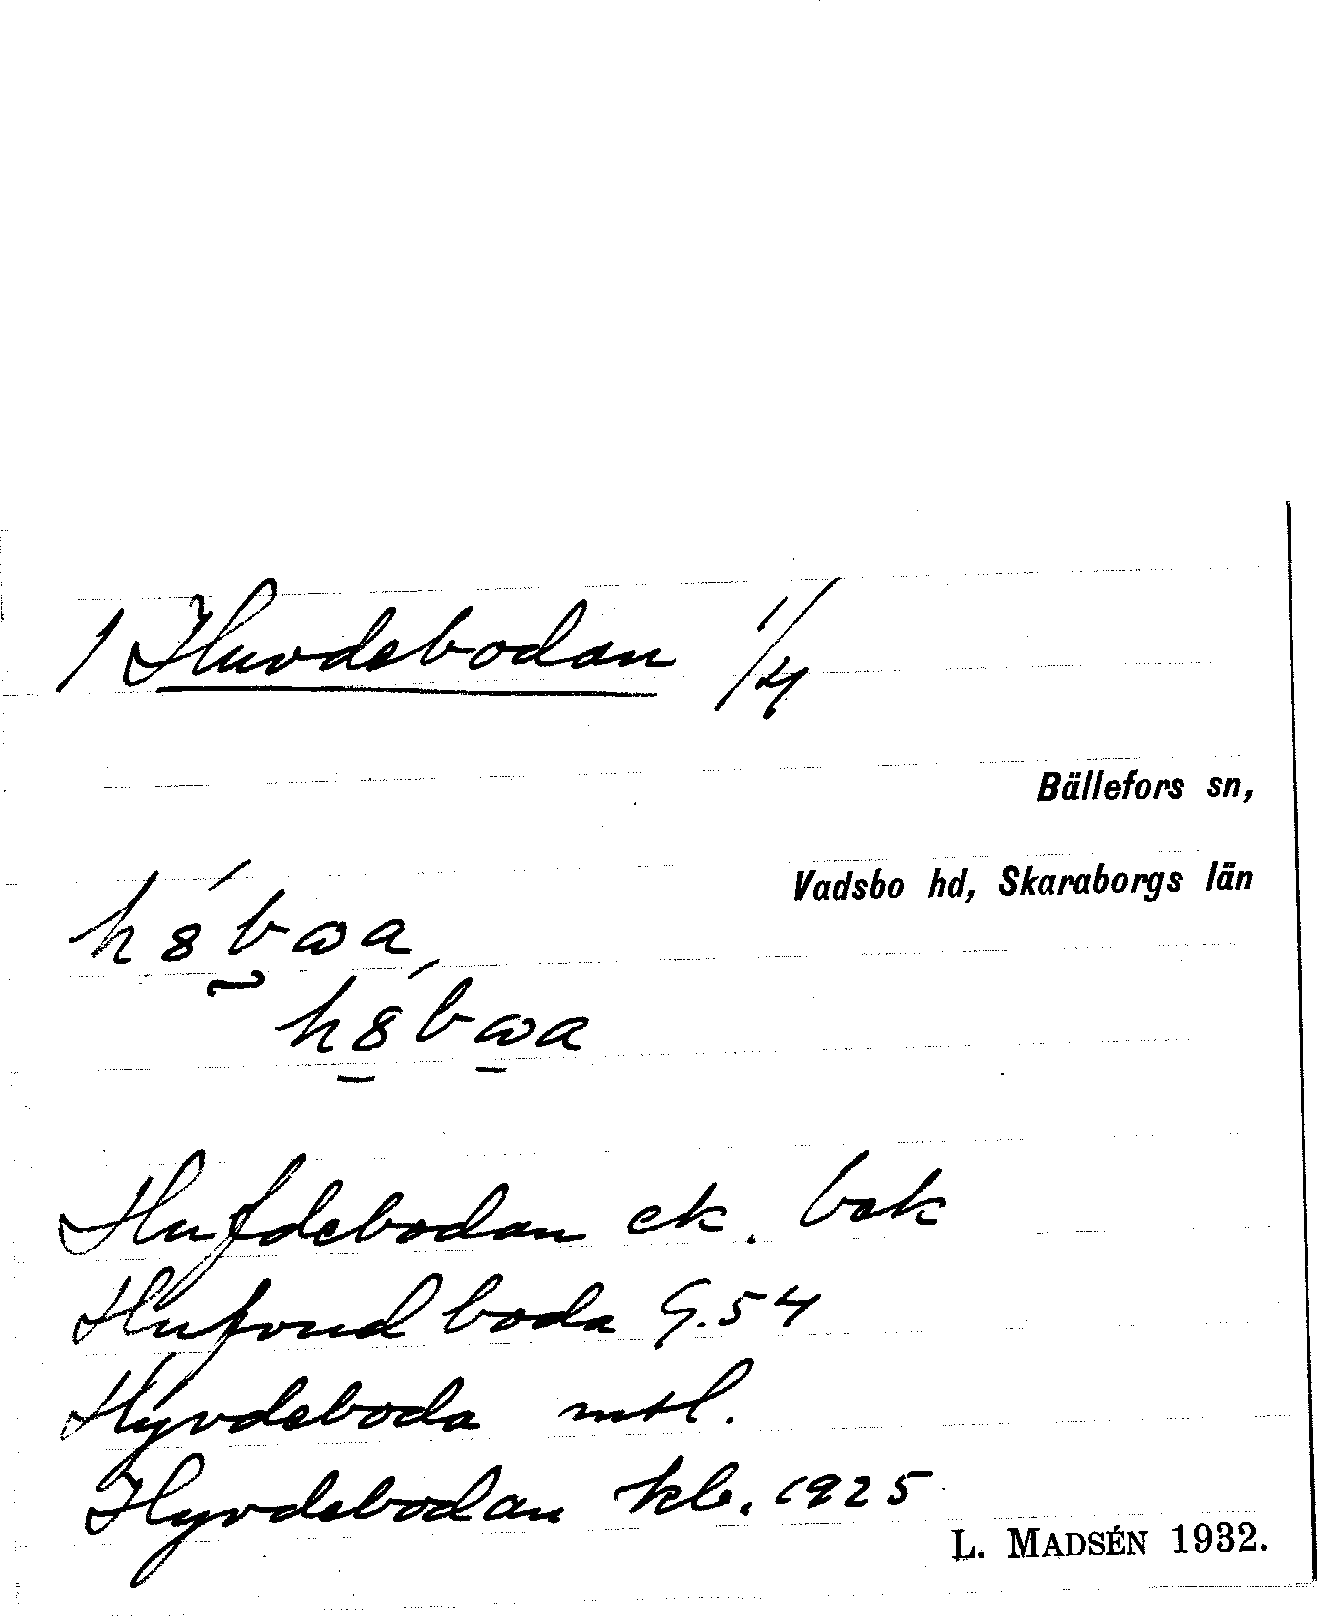 1 Huvdebodan 1/4
Bällefors sn,
Vadsbo hd, Skaraborgs län
Hufdebodan ek. bok
Hufvud boda G. 54
Hyvdeboda mtl.
Hyvdebodan kb. 1925
L. MADSÉN 1932.